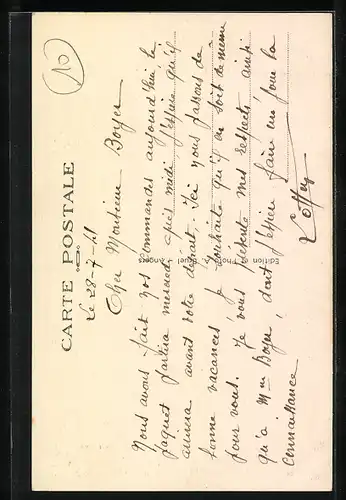 10
CARTE POSTALE
le 28-7-41
Cher Monsieur Boyer
Nous avons fait vos commandes aujourd'hui le
paquet partira mercredi après midi j'espère qu'il
arrivera avant votre départ. Ici nous passons de
bonne vacances je souhaite qu'il en soit de même
pour vous. Je vous présente mes respects ainsi
qu'à Mme Boyer, dont j'espère faire un jour la
connaissance
Edition Photo Angers